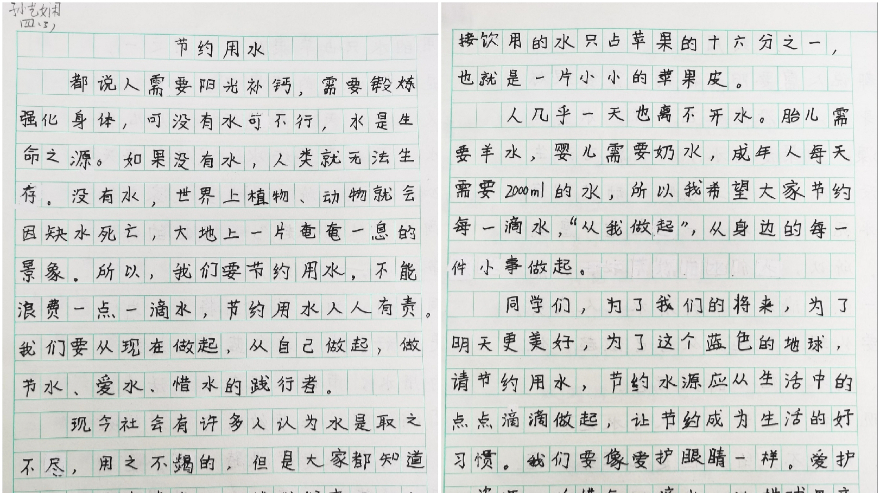 四(3)
节约用水
都说人需要阳光补钙，需要锻炼
强化身体，可没有水可不行，水是生
命之源。如果没有水，人类就无法生
存。没有水，世界上植物、动物就会
因缺水死亡，大地上一片奄奄一息的
景象。所以，我们要节约用水，不能
浪费一点一滴水，节约用水人人有责。
我们要从现在做起，从自己做起，做
节水、爱水、惜水的践行者。
现今社会有许多人认为水是取之
不尽，用之不竭的，但是大家都知道
接饮用的水只占苹果的十六分之一，
也就是一片小小的苹果皮。
人几乎一天也离不开水。胎儿需
要羊水，婴儿需要奶水，成年人每天
需要2000ml的水，所以我希望大家节约
每一滴水，“从我做起”，从身边的每一
件小事做起。
同学们，为了我们的将来，为了
明天更美好，为了这个蓝色的地球，
请节约用水，节约水源应从生活中的
点点滴滴做起，让节约成为生活的好
习惯。我们要像爱护眼睛一样。爱护